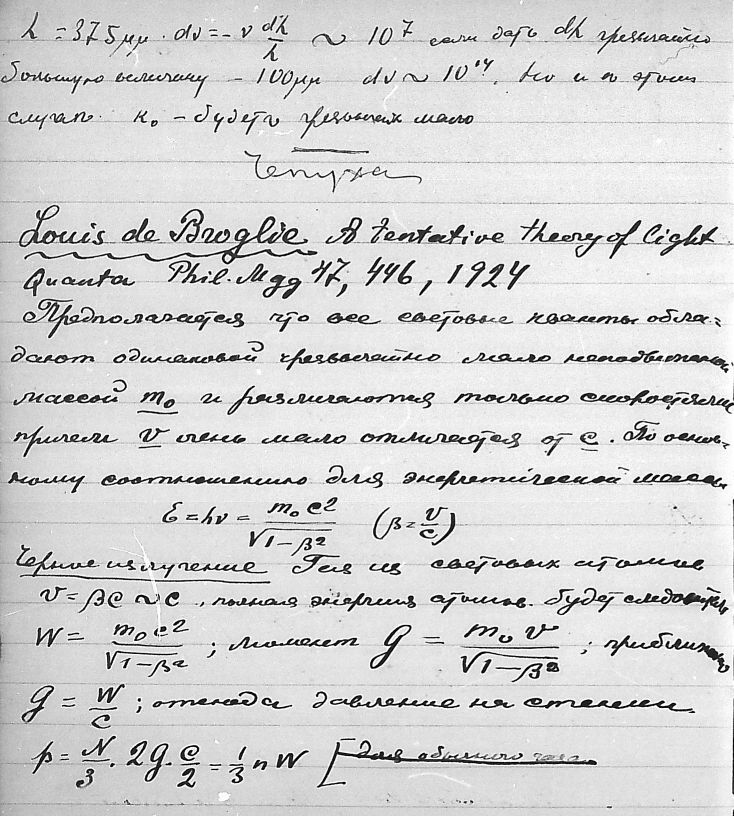 λ = 375 μμ. dν = -ν dλ/λ ~ 10⁷ если дать dλ чрезвычайно
большую величину - 100 μμ dν ~ 10¹⁴. Но и в этом
случае κ₀ - будет чрезвычайно мало
Чепуха
Louis de Broglie A tentative theory of light
Quanta Phil. Mgg 47, 446, 1924
Предполагается что все световые кванты обла=
дают одинаковой чрезвычайно мало неподвижной
массой m₀ и различаются только скоростями
причем v очень мало отличается от c. По основ=
ному соотношению для энергетической массы
ε = hν = m₀c²/√(1-β²) (β = v/c)
Черное излучение Газ из световых атомов
v = βc ~ c, полная энергия атомов будет следовательно
W = m₀c²/√(1-β²); момент G = m₀v/√(1-β²); приближенно
G = W/c; отсюда давление на стенки
p = N/3 · 2G · c/2 = 1/3 n W [для обычного газа